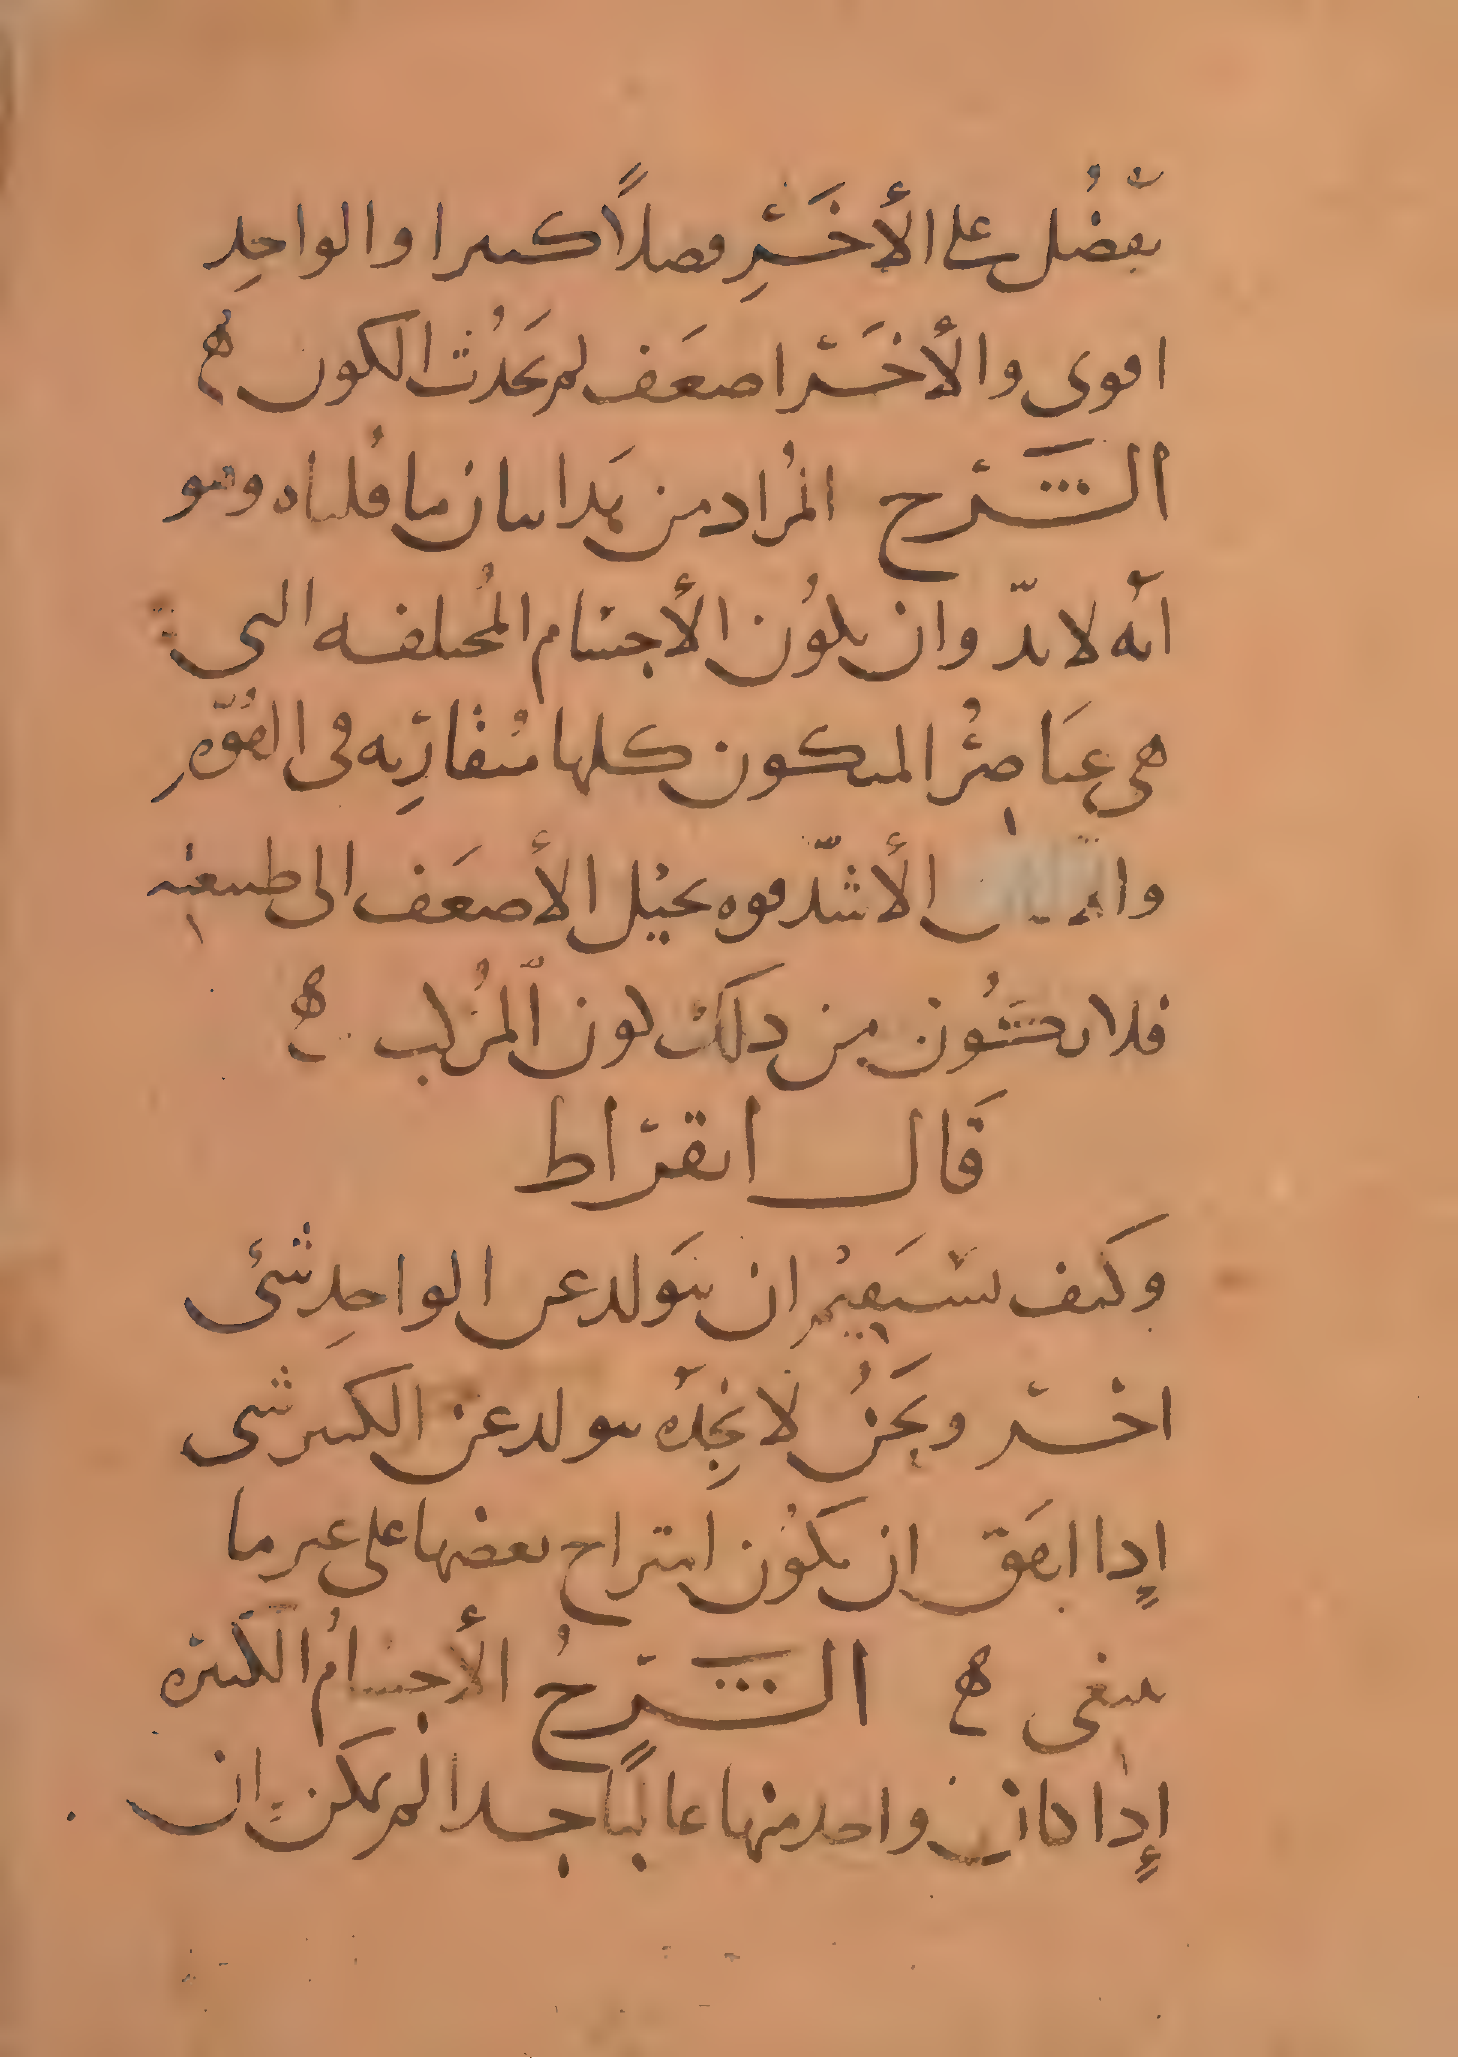 يفضُل على الأخَرِ فضلاً كبيرا والواحِد
اقوى والأخَر اضعَف لم يَحدُث الكون ه
الشَرح المُراد من هَذا بيان ما قُلناه وهو
انّه لا بدّ وان يكُون الأجسام المُختلفه التي
هي عنَاصرُ المتكون كلها مُتقارِبه في القُوّه
وا الأشدّ قوه يحيل الأضعَف الى طبيعته
فلا يكُون من ذلَك لون المُركب ه
قَال ابقراط
وكيف يستَقيمُ ان يتَولد عن الواحِد شئ
اخر ونَحنُ لا نجِدَه يتولد عن الكثير شى
إذا اتفَق ان يكَوُن امتزاج بعضها على غير ما
ينبغى ه الشَرحُ الأجسامُ الكَثيره
إذا كان واحد منها غالبًا جدا لم يمكَن ان